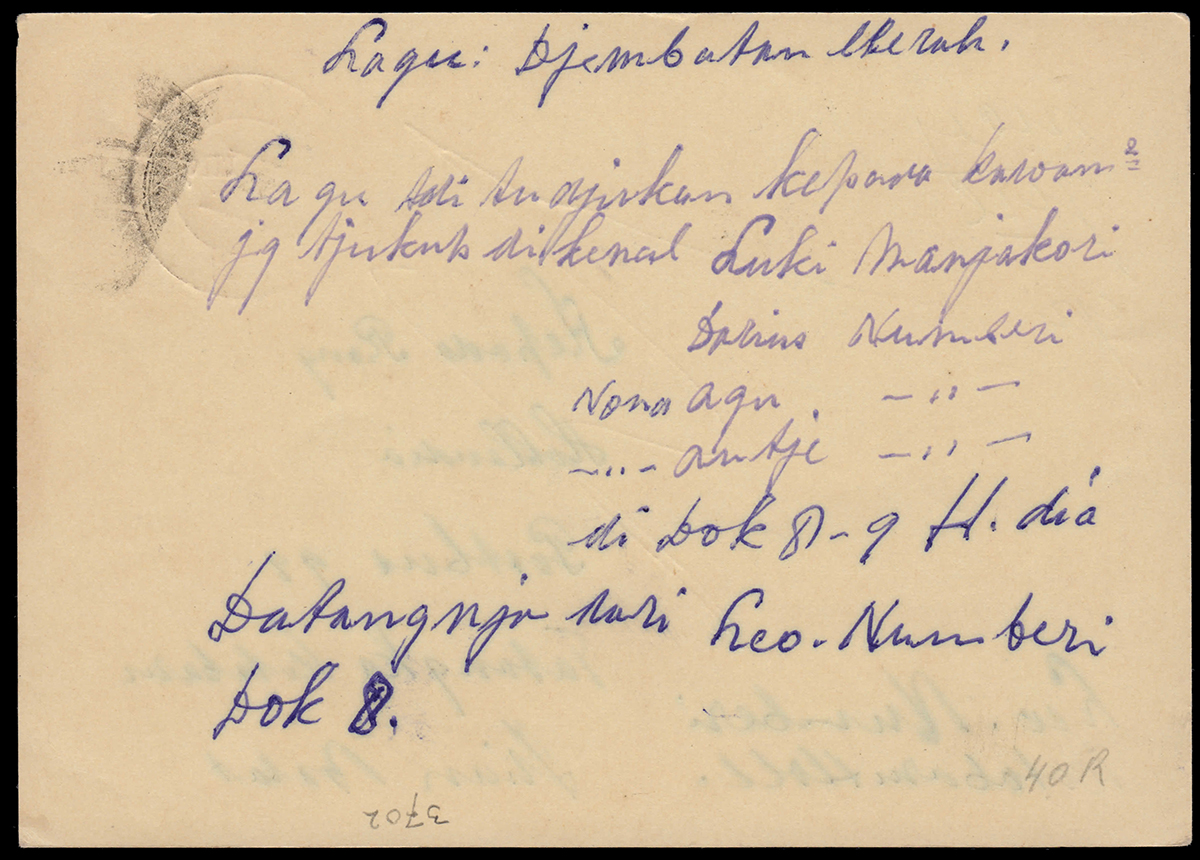 Lagu: Djembatan Merah.
Lagu tdi tudjukan kepada kawan²
jg tjukub dikenal Luki Manjakori
Darius Numberi
Nona agu. -„-
-„- antje -„-
di Dok 8-9 H. dia
Datangnja dari Leo. Numberi
Dok 8.
40 R
3702